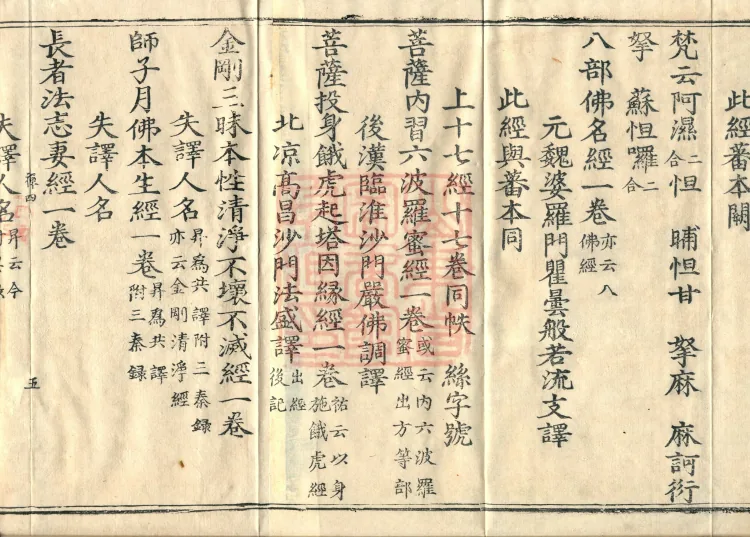 此經蕃本闕
梵云阿濕二合怛 晡怛甘 拏麻 麻訶衍
拏 蘇怛囉二合
八部佛名經一卷亦云八佛經
元魏婆羅門瞿曇般若流支譯
此經與蕃本同
上十七經十七卷同帙 絲字號
菩薩內習六波羅蜜經一卷或云內六波羅蜜經出方等部
後漢臨淮沙門嚴佛調譯
菩薩投身餓虎起塔因緣經一卷祐云以身施餓虎經
北凉高昌沙門法盛譯出經後記
金剛三昧本性清淨不壞不滅經一卷
失譯人名昇爲共譯附三秦録亦云金剛清淨經
師子月佛本生經一卷昇爲共譯附三秦録
失譯人名
長者法志妻經一卷
五
失譯人名昇云今